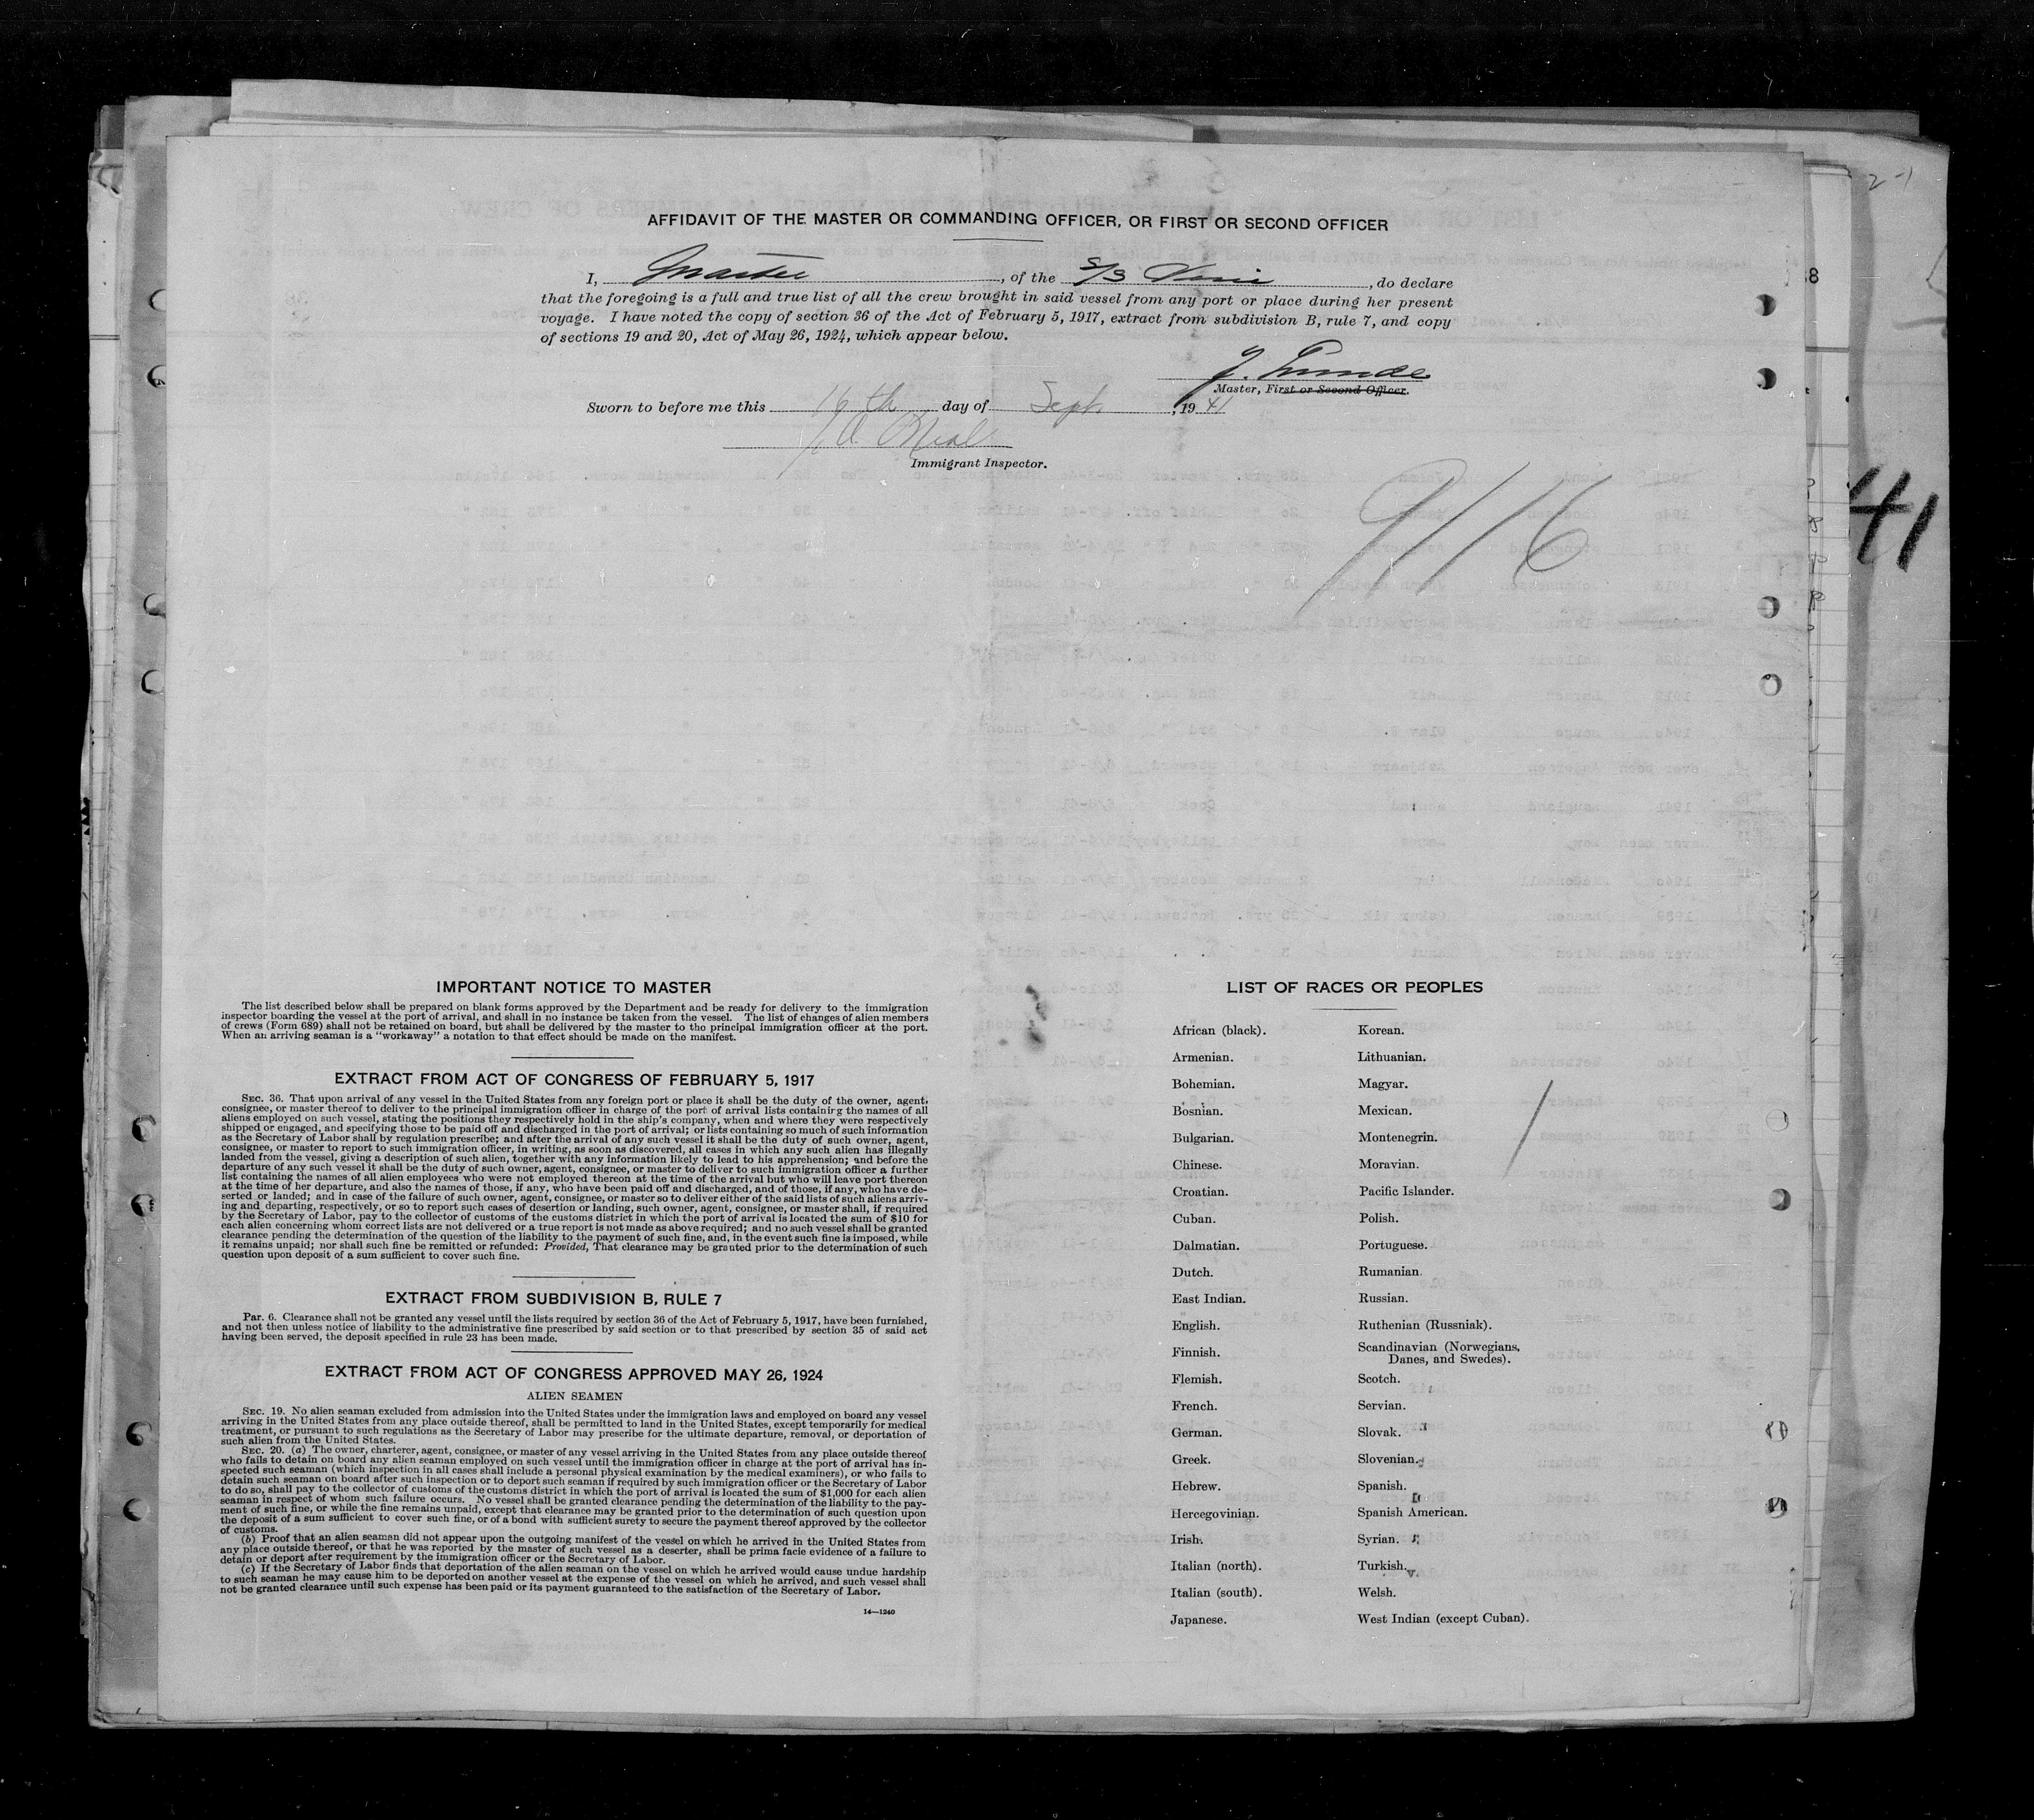 AFFIDAVIT OF THE MASTER OR COMMANDING OFFICER, OR FIRST OR SECOND OFFICER
I, Master, of the S/S, do declare
that the foregoing is a full and true list of all the crew brought in said vessel from any port or place during her present
voyage. I have noted the copy of section 36 of the Act of February 5, 1917, extract from subdivision B, rule 7, and copy
of sections 19 and 20, Act of May 26, 1924, which appear below.
Master, First or Second Officer.
Sworn to before me this 16th day of Sept., 1941
Immigrant Inspector.
9/16
41
2-1
IMPORTANT NOTICE TO MASTER
The list described below shall be prepared on blank forms approved by the Department and be ready for delivery to the immigration
inspector boarding the vessel at the port of arrival, and shall in no instance be taken from the vessel. The list of changes of alien members
of crews (Form 689) shall not be retained on board, but shall be delivered by the master to the principal immigration officer at the port.
When an arriving seaman is a "workaway" a notation to that effect should be made on the manifest.
EXTRACT FROM ACT OF CONGRESS OF FEBRUARY 5, 1917
SEC. 36. That upon arrival of any vessel in the United States from any foreign port or place it shall be the duty of the owner, agent,
consignee, or master thereof to deliver to the principal immigration officer in charge of the port of arrival lists containing the names of all
aliens employed on such vessel, stating the positions they respectively hold in the ship's company, when and where they were respectively
shipped or engaged, and specifying those to be paid off and discharged in the port of arrival; or lists containing so much of such information
as the Secretary of Labor shall by regulation prescribe; and after the arrival of any such vessel it shall be the duty of such owner, agent,
consignee, or master to report to such immigration officer, in writing, as soon as discovered, all cases in which any such alien has illegally
landed from the vessel, giving a description of such alien, together with any information likely to lead to his apprehension; and before the
departure of any such vessel it shall be the duty of such owner, agent, consignee, or master to deliver to such immigration officer a further
list containing the names of all alien employees who were not employed thereon at the time of the arrival but who will leave port thereon
at the time of her departure, and also the names of those, if any, who have been paid off and discharged, and of those, if any, who have de-
serted or landed; and in case of the failure of such owner, agent, consignee, or master so to deliver either of the said lists of such aliens arriv-
ing and departing, respectively, or so to report such cases of desertion or landing, such owner, agent, consignee, or master shall, if required
by the Secretary of Labor, pay to the collector of customs of the customs district in which the port of arrival is located the sum of $10 for
each alien concerning whom correct lists are not delivered or a true report is not made as above required; and no such vessel shall be granted
clearance pending the determination of the question of the liability to the payment of such fine, and, in the event such fine is imposed, while
it remains unpaid; nor shall such fine be remitted or refunded: Provided, That clearance may be granted prior to the determination of such
question upon deposit of a sum sufficient to cover such fine.
EXTRACT FROM SUBDIVISION B, RULE 7
Par. 6. Clearance shall not be granted any vessel until the lists required by section 36 of the Act of February 5, 1917, have been furnished,
and not then unless notice of liability to the administrative fine prescribed by said section or to that prescribed by section 35 of said act
having been served, the deposit specified in rule 23 has been made.
EXTRACT FROM ACT OF CONGRESS APPROVED MAY 26, 1924
ALIEN SEAMEN
SEC. 19. No alien seaman excluded from admission into the United States under the immigration laws and employed on board any vessel
arriving in the United States from any place outside thereof, shall be permitted to land in the United States, except temporarily for medical
treatment, or pursuant to such regulations as the Secretary of Labor may prescribe for the ultimate departure, removal, or deportation of
such alien from the United States.
SEC. 20. (a) The owner, charterer, agent, consignee, or master of any vessel arriving in the United States from any place outside thereof
who fails to detain on board any alien seaman employed on such vessel until the immigration officer in charge at the port of arrival has in-
spected such seaman (which inspection in all cases shall include a personal physical examination by the medical examiners), or who fails to
detain such seaman on board after such inspection or to deport such seaman if required by such immigration officer or the Secretary of Labor
to do so, shall pay to the collector of customs of the customs district in which the port of arrival is located the sum of $1,000 for each alien
seaman in respect of whom such failure occurs. No vessel shall be granted clearance pending the determination of the liability to the pay-
ment of such fine, or while the fine remains unpaid, except that clearance may be granted prior to the determination of such question upon
the deposit of a sum sufficient to cover such fine, or of a bond with sufficient surety to secure the payment thereof approved by the collector
of customs.
(b) Proof that an alien seaman did not appear upon the outgoing manifest of the vessel on which he arrived in the United States from
any place outside thereof, or that he was reported by the master of such vessel as a deserter, shall be prima facie evidence of a failure to
detain or deport after requirement by the immigration officer or the Secretary of Labor.
(c) If the Secretary of Labor finds that deportation of the alien seaman on the vessel on which he arrived would cause undue hardship
to such seaman he may cause him to be deported on another vessel at the expense of the vessel on which he arrived, and such vessel shall
not be granted clearance until such expense has been paid or its payment guaranteed to the satisfaction of the Secretary of Labor.
14—1240
LIST OF RACES OR PEOPLES
African (black).
Armenian.
Bohemian.
Bosnian.
Bulgarian.
Chinese.
Croatian.
Cuban.
Dalmatian.
Dutch.
East Indian.
English.
Finnish.
Flemish.
French.
German.
Greek.
Hebrew.
Hercegovinian.
Irish.
Italian (north).
Italian (south).
Japanese.
Korean.
Lithuanian.
Magyar.
Mexican.
Montenegrin.
Moravian.
Pacific Islander.
Polish.
Portuguese.
Rumanian.
Russian.
Ruthenian (Russniak).
Scandinavian (Norwegians,
Danes, and Swedes).
Scotch.
Servian.
Slovak.
Slovenian.
Spanish.
Spanish American.
Syrian.
Turkish.
Welsh.
West Indian (except Cuban).